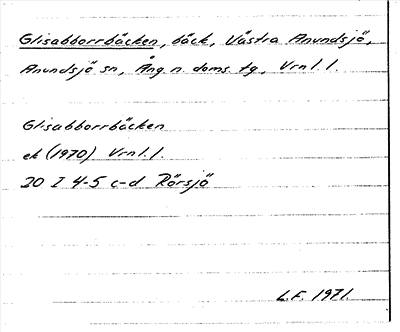 Glisabborrbäcken, bäck, Västra Anundsjö,
Anundsjö sn, Ång. n. doms. tg, Vrnl. l.
Glisabborrbäcken
ek (1970) Vrnl. l.
20 I 4-5 c-d Rörsjö
L.F. 1971.